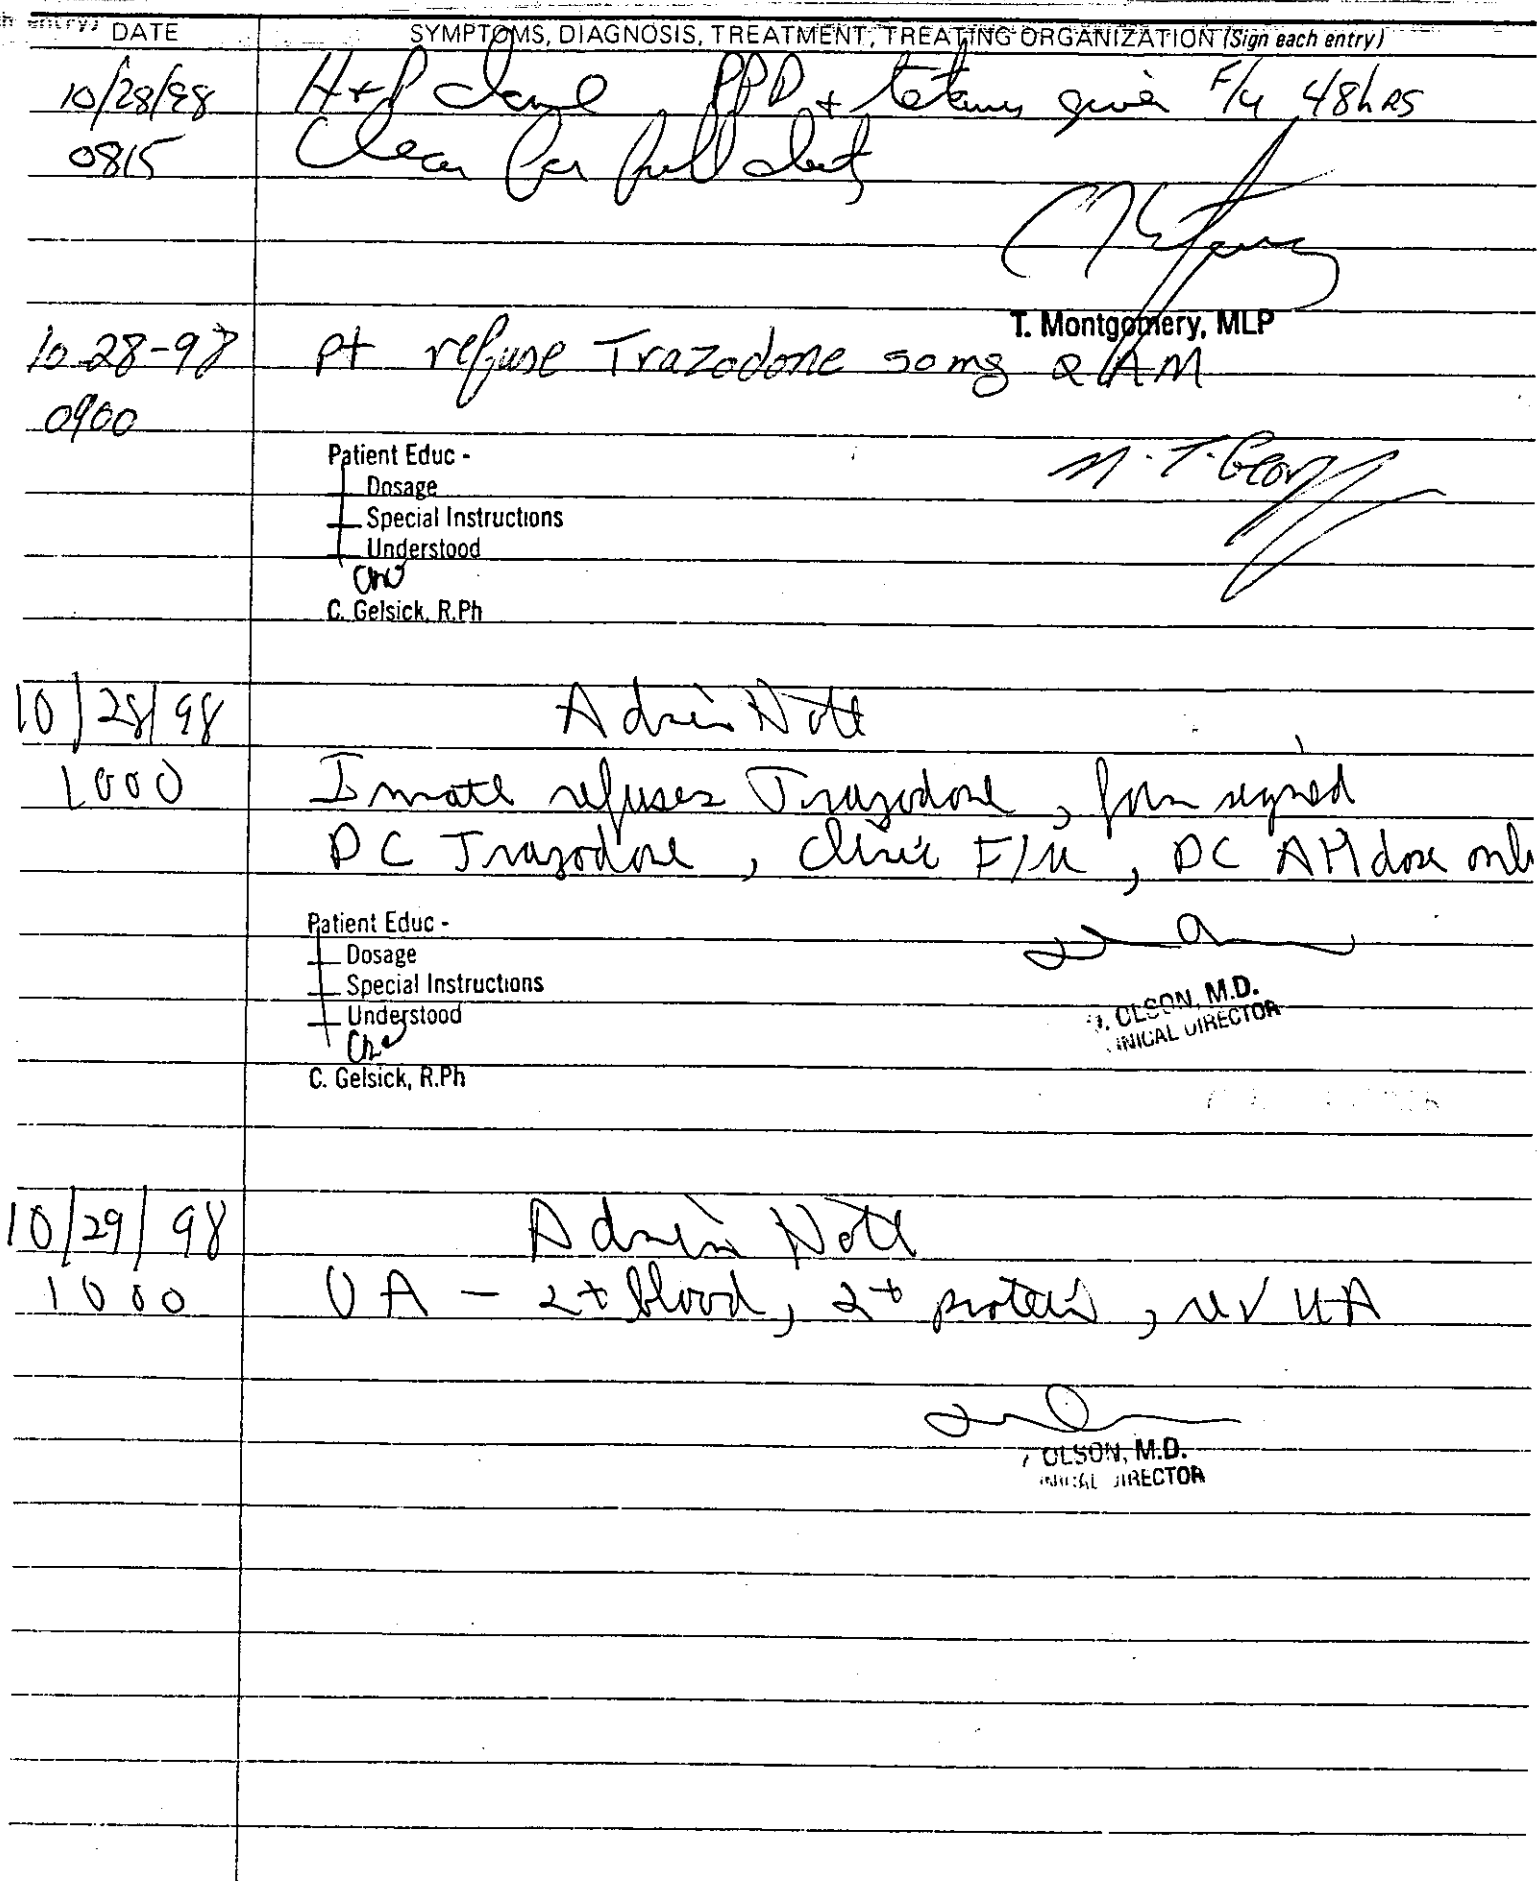 DATE SYMPTOMS, DIAGNOSIS, TREATMENT, TREATING ORGANIZATION (Sign each entry)
10/28/98 H+P done, PPD + tetanus given F/u 48hrs
0815 Clear for full duty
T. Montgomery, MLP
10-28-98 pt refuse Trazodone 50mg Q AM
0900
Patient Educ -
Dosage
Special Instructions
Understood
C. Gelsick, R.Ph
10/28/98 Admin Note
1000 Inmate refuses Trazodone, form signed
DC Trazodone, clinic F/u, DC AM dose only
Patient Educ -
Dosage
Special Instructions
Understood
C. Gelsick, R.Ph
OLSON, M.D.
INICAL DIRECTOR
10/29/98 Admin Note
1000 UA - 2+ blood, 2+ protein, UA
OLSON, M.D.
DIRECTOR